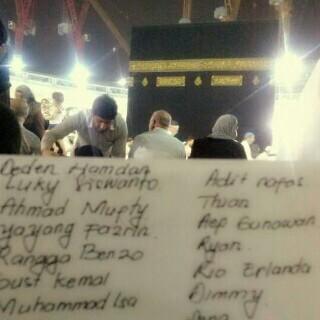 Deden Hamdan
Luky Siswanto
Ahmad Mufty
yayang Fazrin
Rangga Benzo
oust kemal
Muhammad Isa
Adit nafas
Thian
Aep Gunawan
Ryan
Rio Erlanda
Dimmy